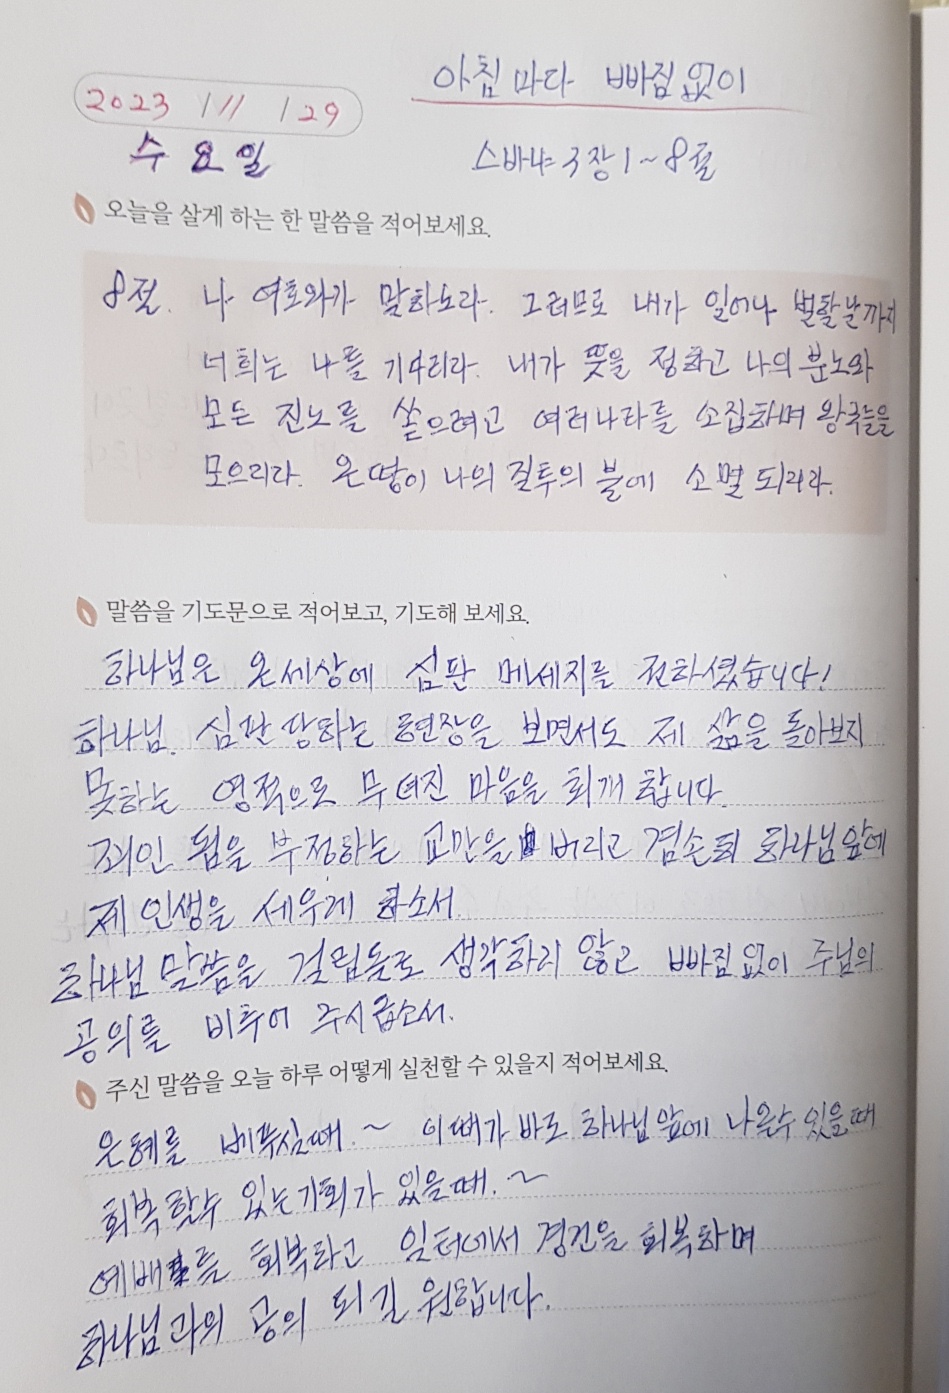 아침마다 빠짐없이
2023 / 11 / 29
수요일
스바냐 3장 1~8절
오늘을 살게 하는 한 말씀을 적어보세요.
8절. 나 여호와가 말하노라. 그러므로 내가 일어나 벌할날까지
너희는 나를 기다리라. 내가 뜻을 정하고 나의 분노와
모든 진노를 쏟으려고 여러나라를 소집하며 왕국들을
모으리라. 온땅이 나의 질투의 불에 소멸 되리라.
말씀을 기도문으로 적어보고, 기도해 보세요.
하나님은 온세상에 심판 메세지를 전하셨습니다!
하나님. 심판 당하는 현장을 보면서도 제 삶을 돌아보지
못하는 영적으로 무뎌진 마음을 회개 합니다.
죄인 됨을 부정하는 교만을 버리고 겸손히 하나님앞에
제 인생을 세우게 하소서.
하나님 말씀을 걸림돌로 생각하지 않고 빠짐없이 주님의
공의를 비추어 주시옵소서.
주신 말씀을 오늘 하루 어떻게 실천할 수 있을지 적어보세요.
은혜를 베푸실때.~ 이때가 바로 하나님 앞에 나올수 있을때
회복할수 있는기회가 있을때.~
예배를 회복하고 일터에서 경건을 회복하며
하나님과의 공의 되길 원합니다.